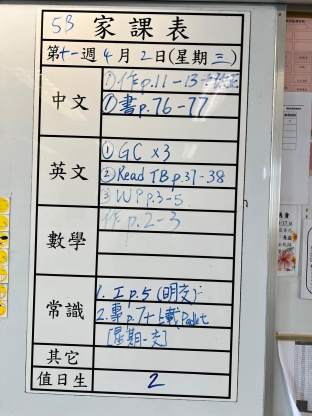 5B 家課表
第十一週 4月2日(星期三)
中文
①作p.11-13
①書p.76-77
英文
①GC x3
②Read TB p.37-38
③WP p.3-5
數學
作p.2-3
常識
1. 工p.5 (明交)
2. 專p.7+上載Padlet
[星期一交]
其它
值日生 2